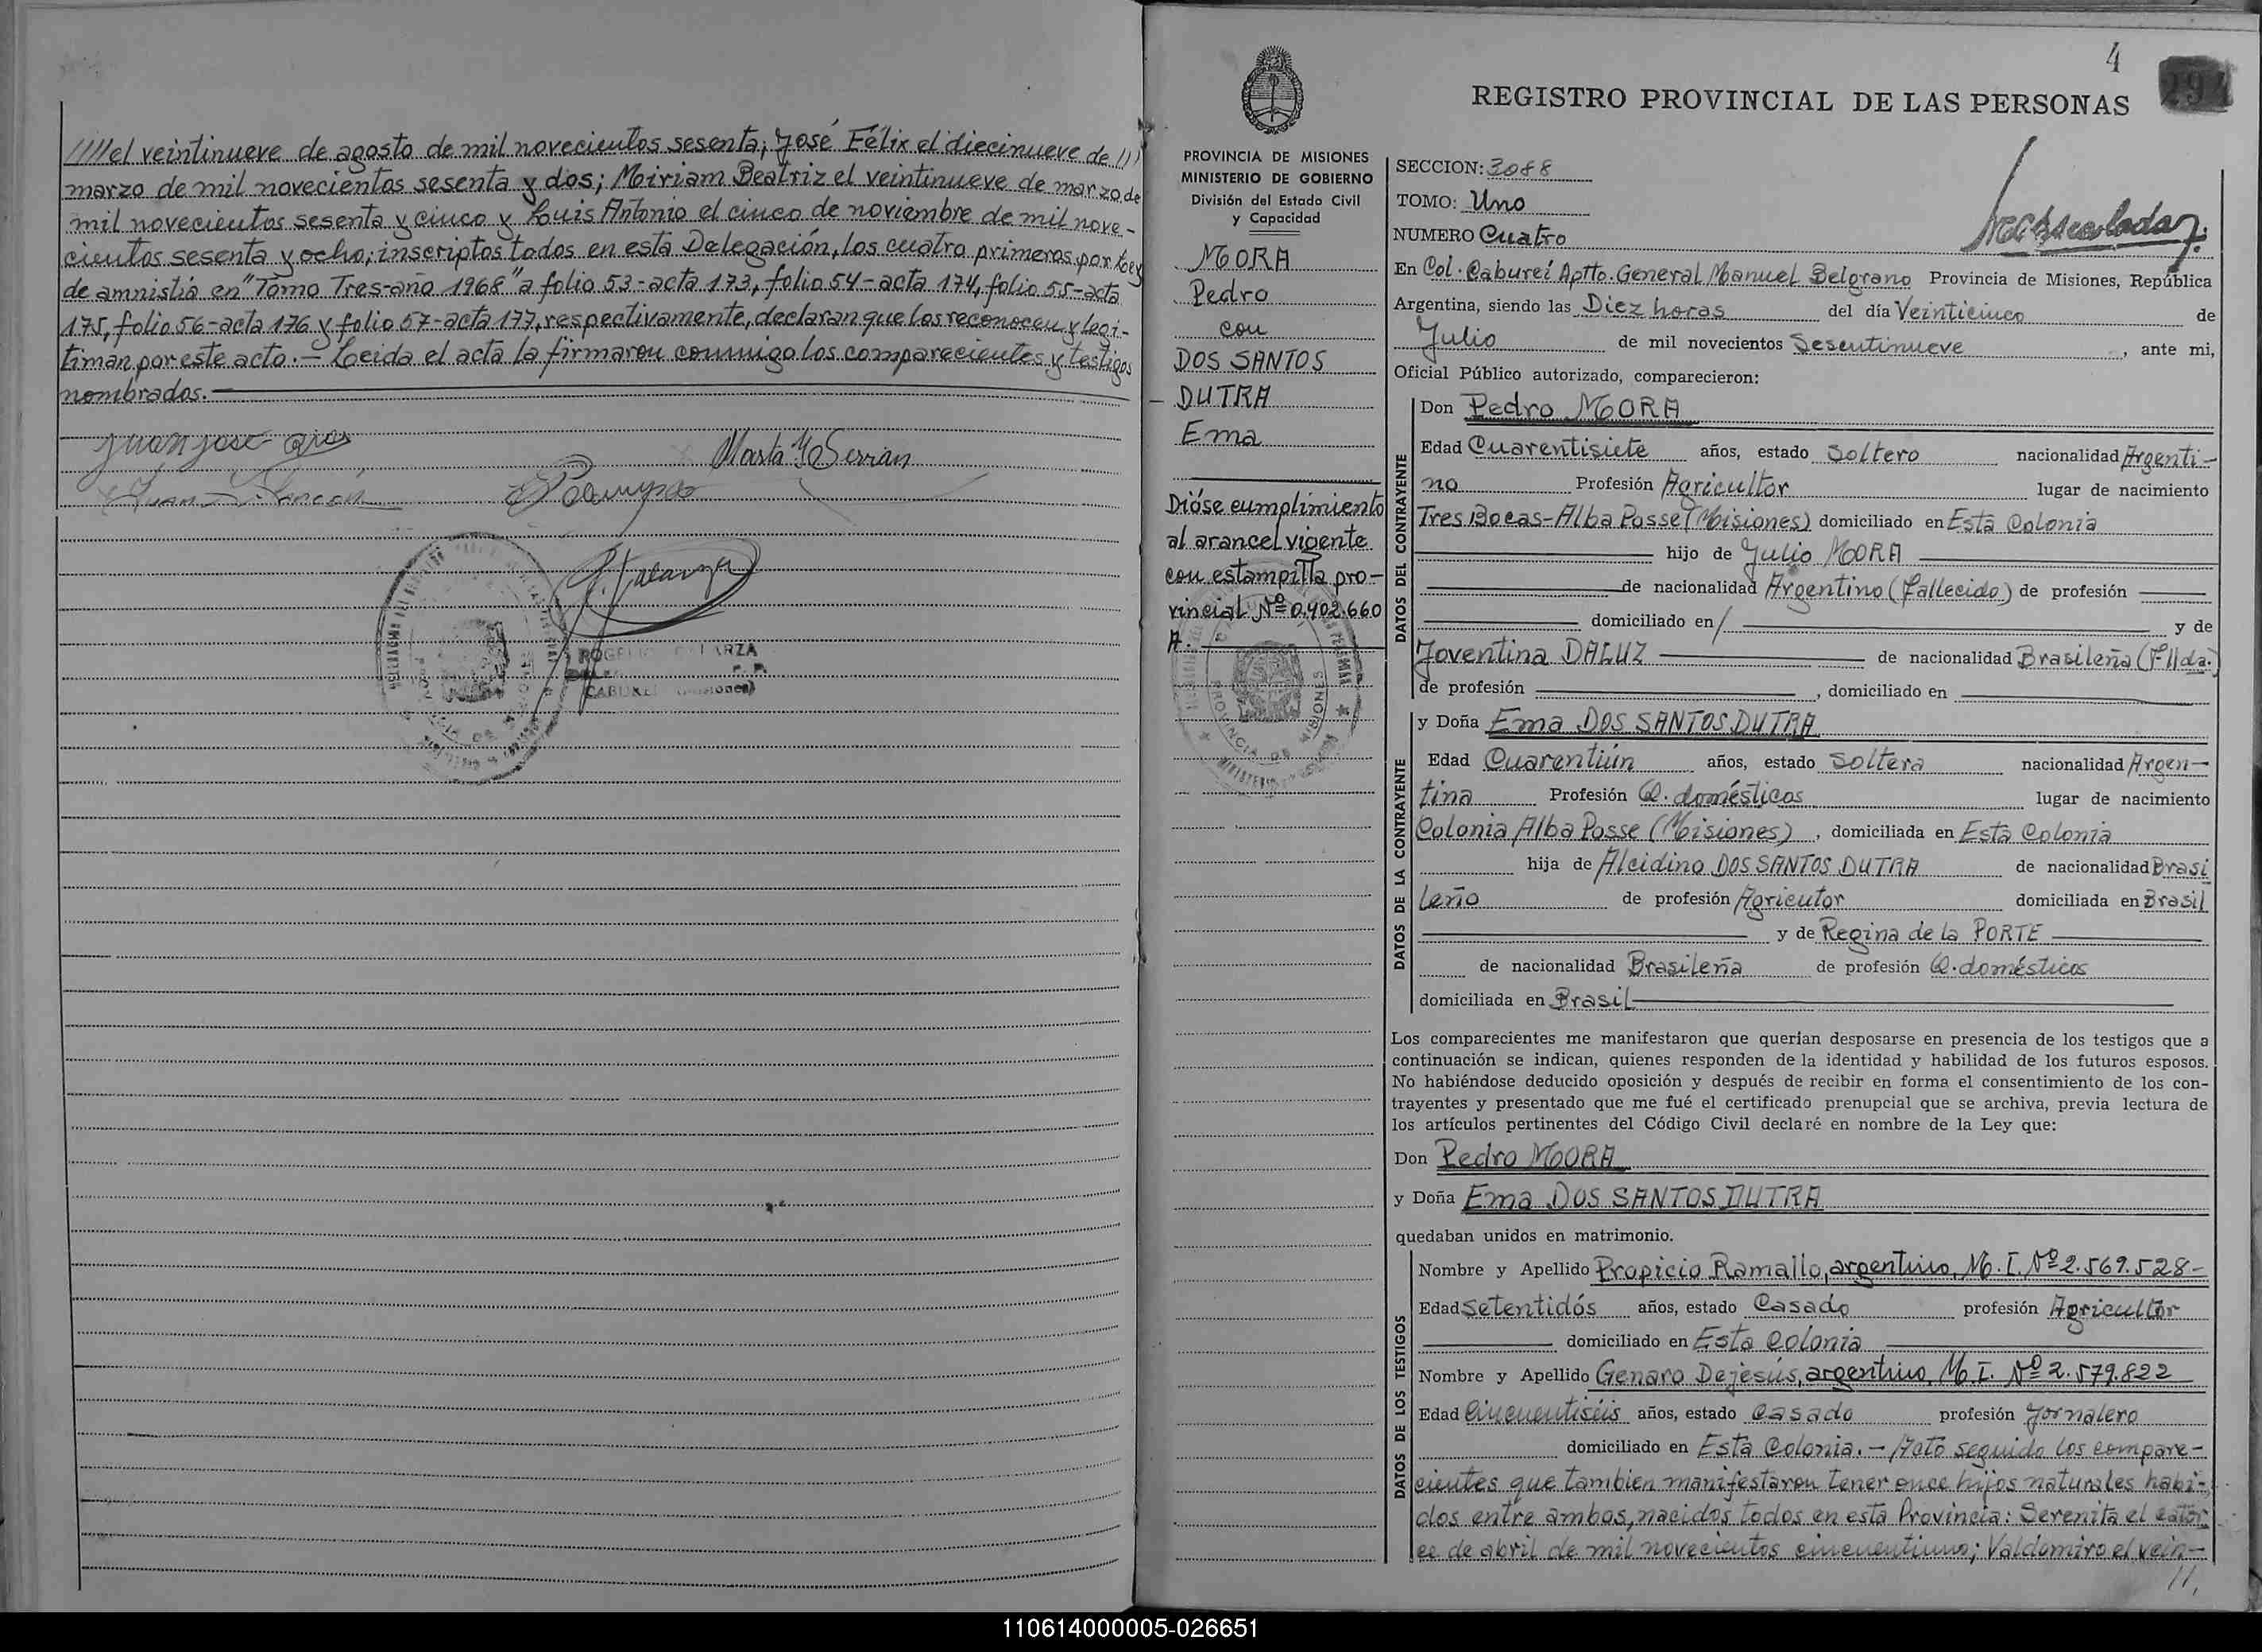 ////el veintinueve de agosto de mil novecientos sesenta; José Félix el diecinueve de ///
marzo de mil novecientos sesenta y dos; Miriam Beatriz el veintinueve de marzo de
mil novecientos sesenta y cinco y Luis Antonio el cinco de noviembre de mil nove-
cientos sesenta y ocho; inscriptos todos en esta Delegación, los cuatro primeros por Ley
de amnistía en "Tomo Tres-año 1968" a folio 53-acta 173, folio 54-acta 174, folio 55-acta
175, folio 56-acta 176 y folio 57-acta 177, respectivamente, declaran que los reconocen y legi-
timan por este acto.- Leida el acta la firmaron conmigo los comparecientes y testigos
nombrados.
Juan José
Marta
ROGELIO GALARZA
4
294
REGISTRO PROVINCIAL DE LAS PERSONAS
PROVINCIA DE MISIONES
MINISTERIO DE GOBIERNO
División del Estado Civil
y Capacidad
MORA
Pedro
con
DOS SANTOS
DUTRA
Ema
Dióse cumplimiento
al arancel vigente
con estampilla pro-
vincial Nº 0.402.660
A.
PROVINCIA DE MISIONES
SECCION: 3088
TOMO: Uno
NUMERO Cuatro
En Col. Caburei Aptto. General Manuel Belgrano Provincia de Misiones, República
Argentina, siendo las Diez horas del día Veinticinco de
Julio de mil novecientos Sesentinueve, ante mi,
Oficial Público autorizado, comparecieron:
DATOS DEL CONTRAYENTE
Don Pedro MORA
Edad Cuarentisiete años, estado Soltero nacionalidad Argenti-
no Profesión Agricultor lugar de nacimiento
Tres Bocas-Alba Posse (Misiones) domiciliado en Esta Colonia
hijo de Julio MORA
de nacionalidad Argentino (fallecido) de profesión
domiciliado en / y de
Joventina DALUZ de nacionalidad Brasileña (F.llda.)
de profesión , domiciliado en
DATOS DE LA CONTRAYENTE
y Doña Ema DOS SANTOS DUTRA
Edad Cuarentiún años, estado Soltera nacionalidad Argen-
tina Profesión Q. domésticos lugar de nacimiento
Colonia Alba Posse (Misiones), domiciliada en Esta Colonia
hija de Alcidino DOS SANTOS DUTRA de nacionalidad Brasi
leño de profesión Agricutor domiciliada en Brasil
y de Regina de la PORTE
de nacionalidad Brasileña de profesión Q. domésticos
domiciliada en Brasil
Los comparecientes me manifestaron que querían desposarse en presencia de los testigos que a
continuación se indican, quienes responden de la identidad y habilidad de los futuros esposos.
No habiéndose deducido oposición y después de recibir en forma el consentimiento de los con-
trayentes y presentado que me fué el certificado prenupcial que se archiva, previa lectura de
los artículos pertinentes del Código Civil declaré en nombre de la Ley que:
Don Pedro MORA
y Doña Ema DOS SANTOS DUTRA
quedaban unidos en matrimonio.
DATOS DE LOS TESTIGOS
Nombre y Apellido Propicio Ramallo, argentino, M.I. Nº 2.569.528-
Edad Setentidós años, estado Casado profesión Agricultor
domiciliado en Esta Colonia
Nombre y Apellido Genaro Dejesús, argentino, M.I. Nº 2.579.822
Edad Cincuentiséis años, estado Casado profesión Jornalero
domiciliado en Esta Colonia.- Acto seguido los compare-
cientes que tambien manifestaron tener once hijos naturales habi-
dos entre ambos, nacidos todos en esta Provincia: Serenita el cator
ce de abril de mil novecientos cincuentiuno; Valdomiro el vein-
//,
110614000005-026651